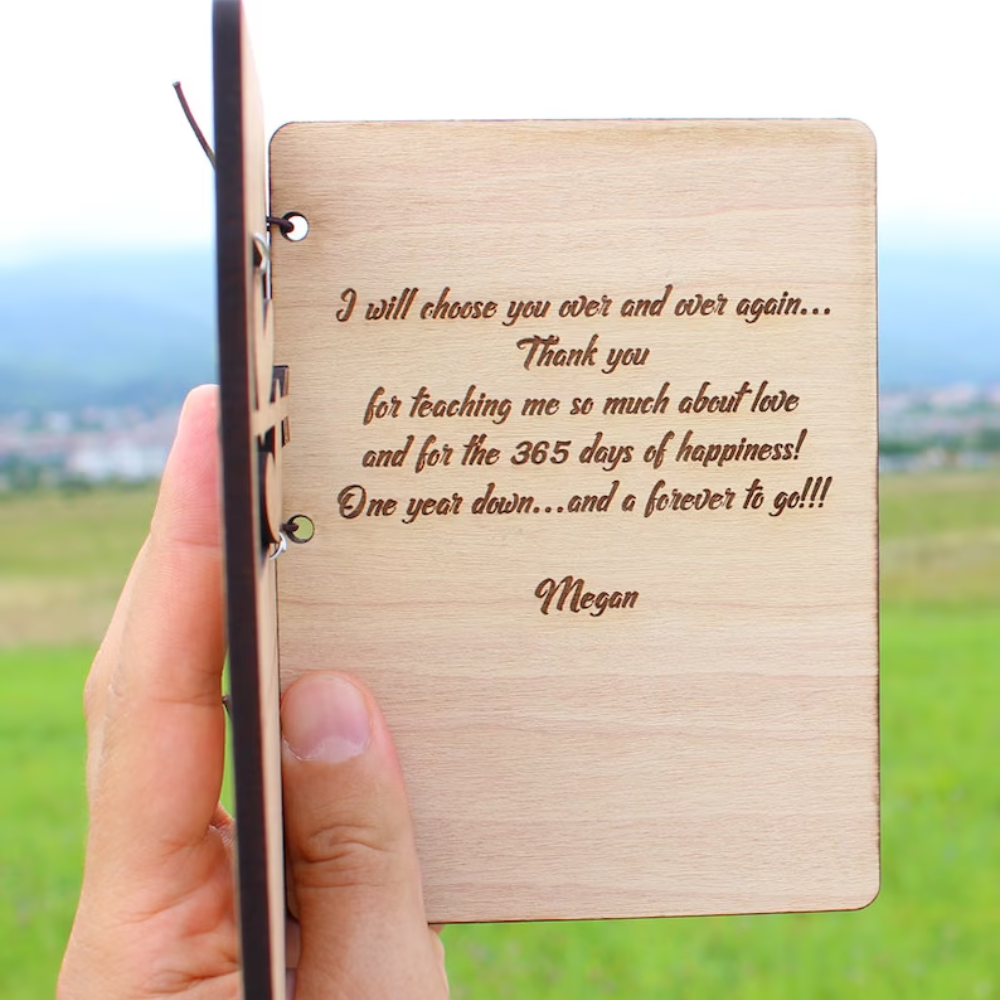 I will choose you over and over again...
Thank you
for teaching me so much about love
and for the 365 days of happiness!
One year down...and a forever to go!!!
Megan